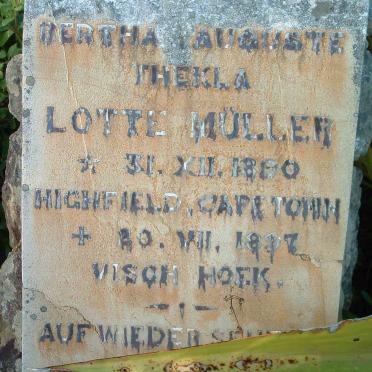 BERTHA AUGUSTE
THEKLA
LOTTE MÜLLER
☆ 31. XII. 1890
HIGHFIELD, CAPETOWN
+ 20. VII. 1897
VISCH HOEK.
AUF WIEDER